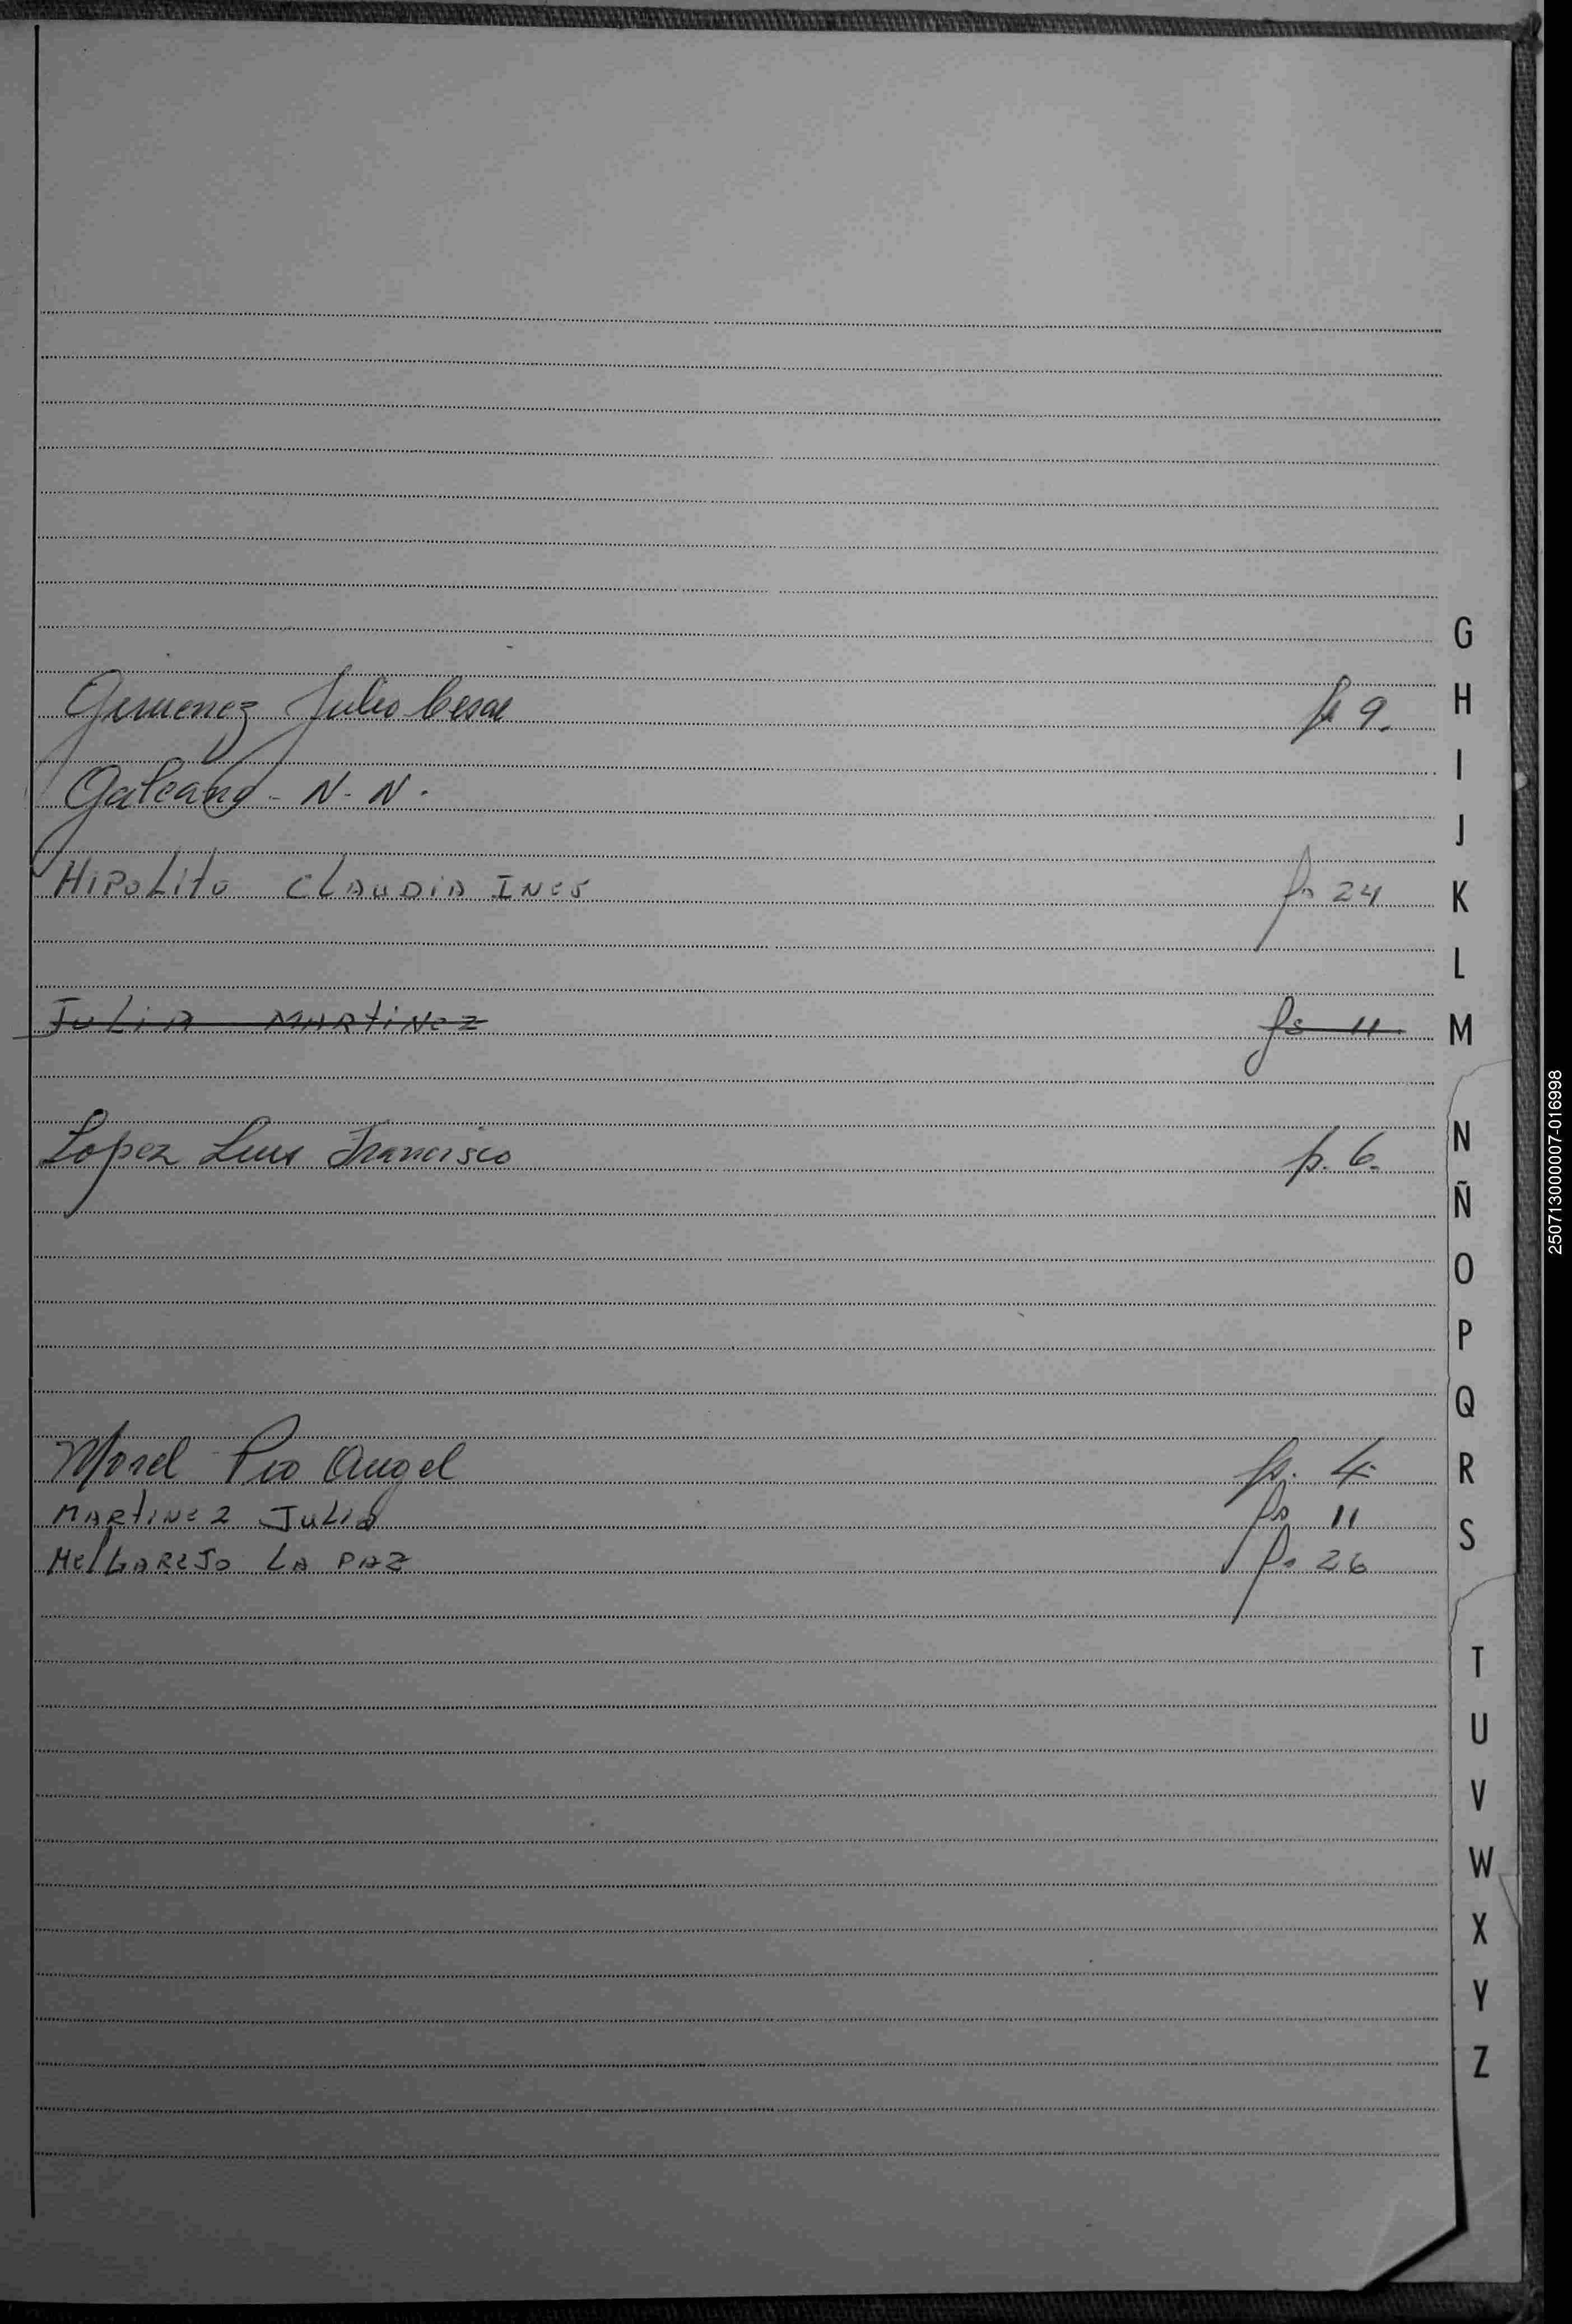 G
Gimenez Julio Cesar fs 9.
H
I
Galeano - N. N.
J
Hipolito Claudia Ines fs 24
K
L
Julia Martinez fs 11
M
N
Lopez Luis Francisco fs. 6.
Ñ
O
P
Q
Morel Pio Angel fs. 4.
R
Martinez Julia fs 11
S
Melgarejo La Paz fs 26
T
U
V
W
X
Y
Z
250713000007-016998